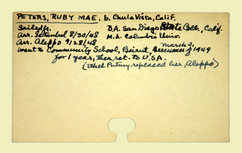 PETERS, RUBY MAE, b. Chula Vista, Calif.
B.A. San Diego State Coll., Calif.
M.A. Columbia Univ.
Arr. Istanbul 8/30/48
Arr. Aleppo 9/28/48
Went to Community School, Beirut, March 4, 1949
for 1 year, then ret. to U.S.A.
(Ethel Putney replaced her Aleppo)